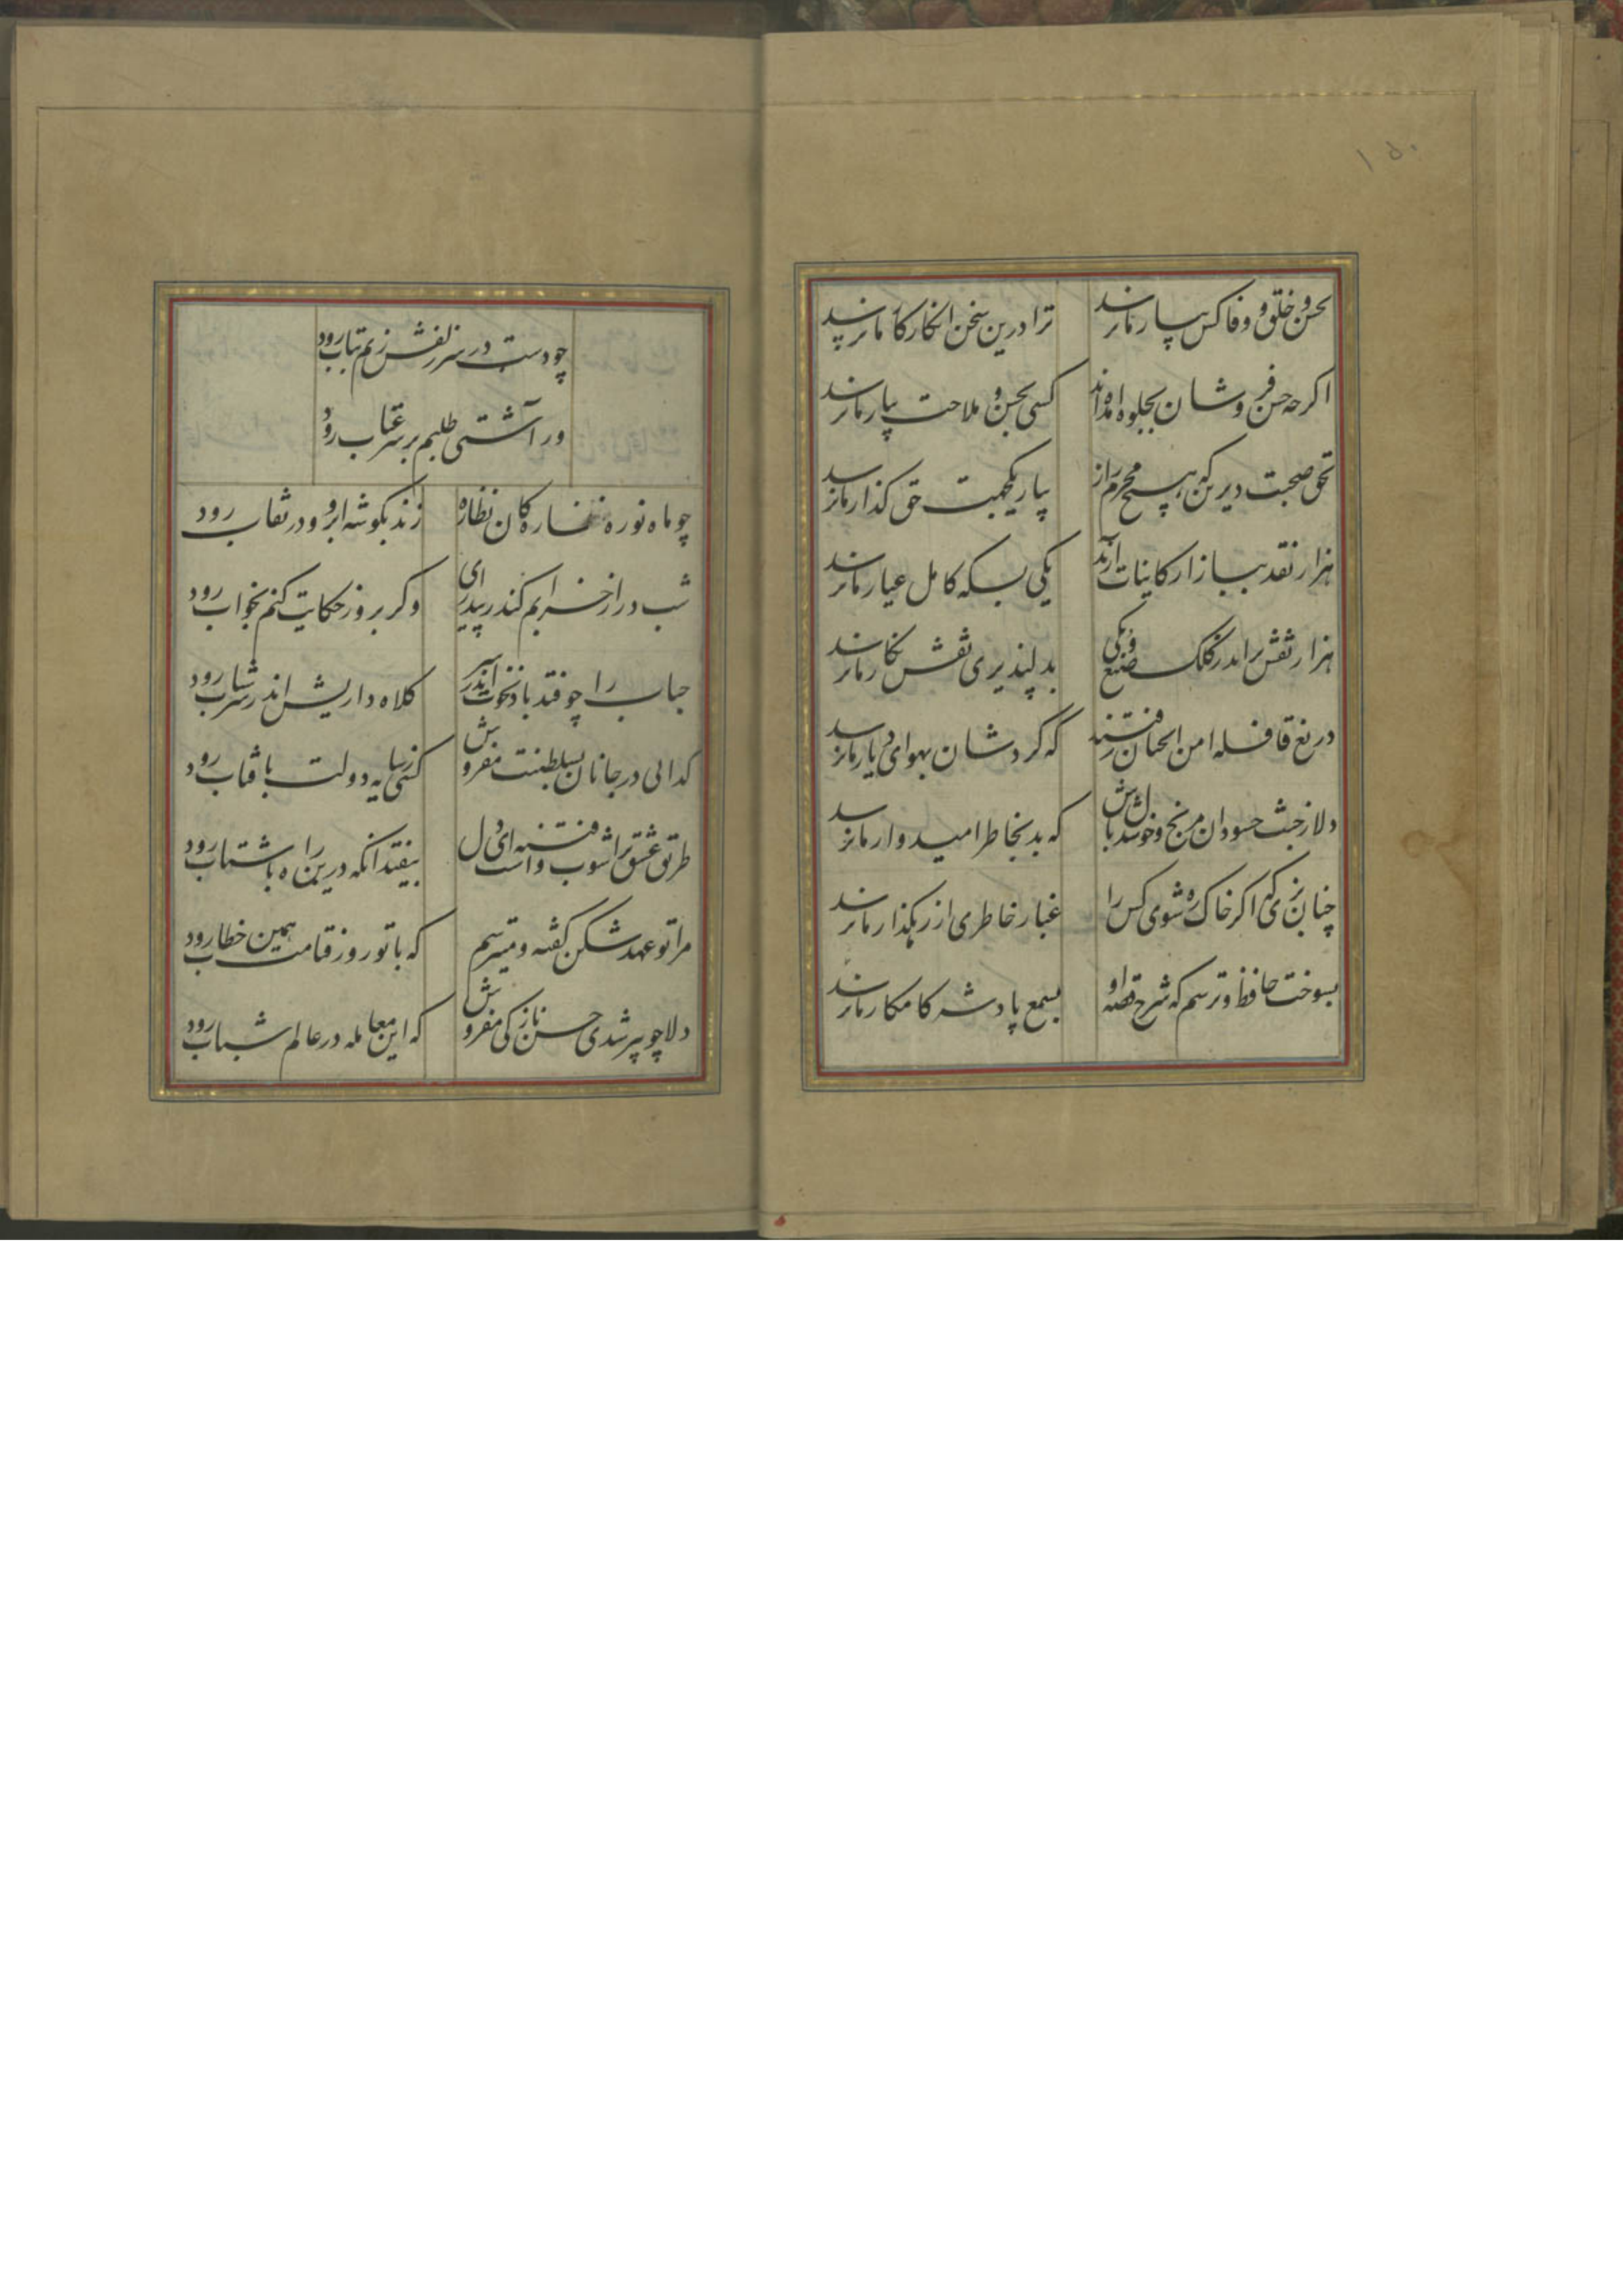 ۱۵۰
بحسن و خلق و وفا کس بیار ما نرسد ترا درین سخن انکار کار ما نرسد
اکرچه حسن فروشان بجلوه آمده‌اند کسی بحسن و ملاحت بیار ما نرسد
بحق صحبت دیرین که هیچ محرم راز بیار یکجهت حق کذار ما نرسد
هزار نقد ببازار کاینات آرند یکی بسکه کامل عیار ما نرسد
هزار نقش براید ز کلک صنع و یکی بدلپذیری نقش نکار ما نرسد
دریغ قافله امن انچنان رفتند که کردشان بهوای دیار ما نرسد
دلا ز خبث حسودان مرنج و خوشدل باش که بد بخاطر امیدوار ما نرسد
چنان بزی که اکر خاک ره شوی کس را غبار خاطری از رهکذار ما نرسد
بسوخت حافظ و ترسم که شرح قصه او بسمع پادشه کامکار ما نرسد
چو دست در سر زلفش زنم بتاب رود
ور آشتی طلبم بر سر عتاب رود
چو ماه نو ره نظارکان نظاره زند بکوشه ابرو و در نقاب رود
شب دراز خرابم کند ز بیداری وکر بروز حکایت کنم بخواب رود
حباب را چو فتد باد نخوت اندر سر کلاه داریش اندر سر شراب رود
کدایی در جانان بسلطنت مفروش کسی ز سایه دولت بافتاب رود
طریق عشق پراشوب و فتنه است ای دل بیفتد انکه درین راه با شتاب رود
مرا تو عهد شکن کفته و میترسم که با تو روز قیامت همین خطاب رود
دلا چو پیر شدی حسن و نازکی مفروش که این معامله در عالم شباب رود